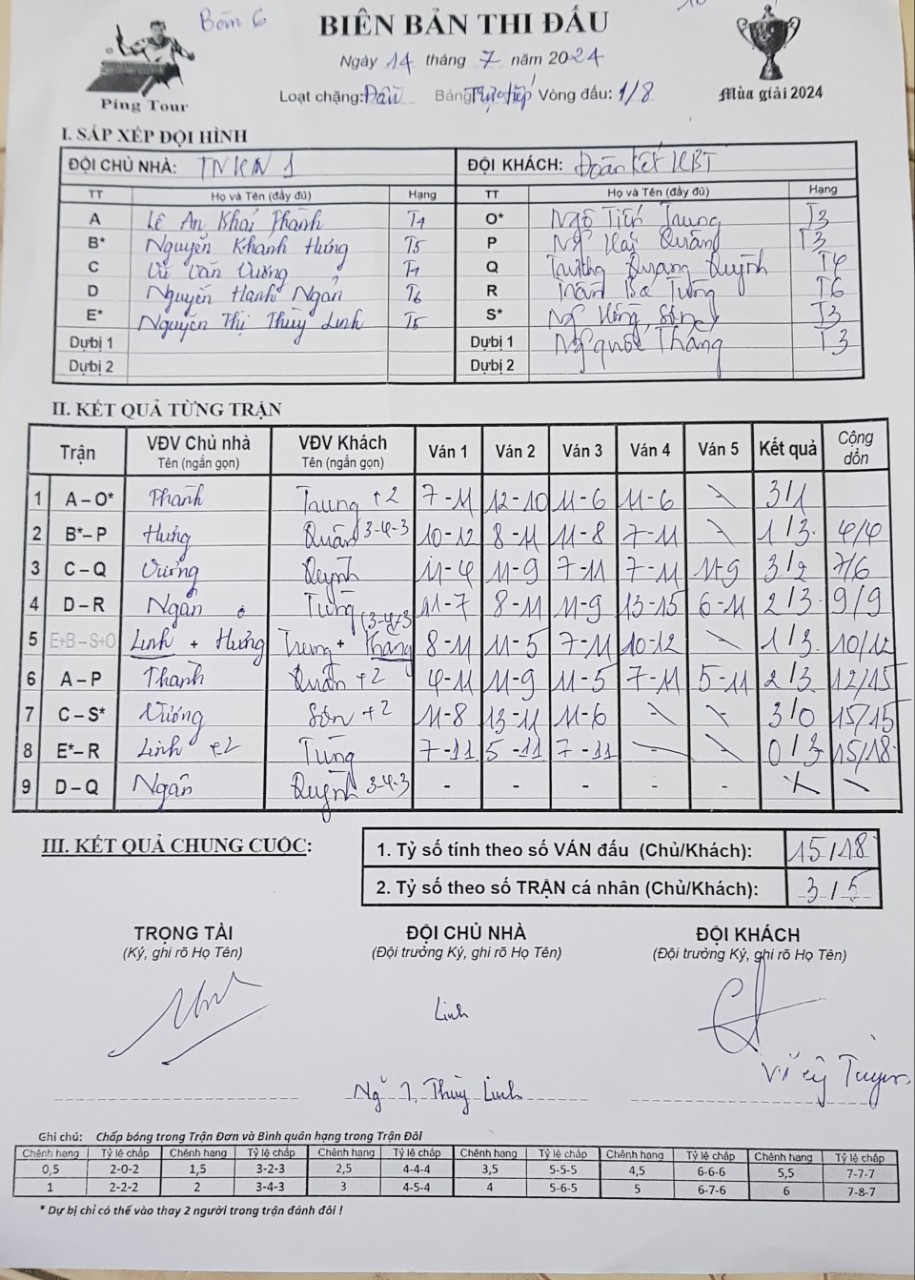 Bàn 6
BIÊN BẢN THI ĐẤU
Ngày 14 tháng 7 năm 2024
Ping Tour
Loạt chặng: Đấu Bảng Trực tiếp Vòng đấu: 1/8
Mùa giải 2024
I. SẮP XẾP ĐỘI HÌNH
ĐỘI CHỦ NHÀ: TNKN 1 ĐỘI KHÁCH: Đoàn Kết KBT
TT Họ và Tên (đầy đủ) Hạng TT Họ và Tên (đầy đủ) Hạng
A Lê An Khải Thành T4 O* Ngô Tiến Trung T3
B* Nguyễn Khanh Hưng T5 P Ng Hải Quân T3
C Vũ Văn Vương T4 Q Trương Quang Quỳnh T4
D Nguyễn Hạnh Ngân T6 R Trần Bá Tùng T6
E* Nguyễn Thị Thùy Linh T5 S* Ng Hồng Sơn T3
Dự bị 1 Dự bị 1 Ng Quốc Thắng T3
Dự bị 2 Dự bị 2
II. KẾT QUẢ TỪNG TRẬN
Trận VĐV Chủ nhà Tên (ngắn gọn) VĐV Khách Tên (ngắn gọn) Ván 1 Ván 2 Ván 3 Ván 4 Ván 5 Kết quả Cộng dồn
1 A – O* Thành Trung +2 7-11 12-10 11-6 11-6 3/1
2 B* – P Hưng Quân 3-4-3 10-12 8-11 11-8 7-11 1/3 4/4
3 C – Q Vương Quỳnh 11-4 11-9 7-11 7-11 11-9 3/2 7/6
4 D – R Ngân Tùng 11-7 8-11 11-9 13-15 6-11 2/3 9/9
5 E+B – S+O Linh + Hưng Trung + Thắng (3-4-3 8-11 11-5 7-11 10-12 1/3 10/12
6 A – P Thành Quân +2 4-11 11-9 11-5 7-11 5-11 2/3 12/15
7 C – S* Vương Sơn +2 11-8 13-11 11-6 3/0 15/15
8 E* – R Linh +2 Tùng 7-11 5-11 7-11 0/3 15/18
9 D – Q Ngân Quỳnh 3-4-3 - - - - -
III. KẾT QUẢ CHUNG CUỘC:
1. Tỷ số tính theo số VÁN đấu (Chủ/Khách): 15/18
2. Tỷ số theo số TRẬN cá nhân (Chủ/Khách): 3/5
TRỌNG TÀI ĐỘI CHỦ NHÀ ĐỘI KHÁCH
(Ký, ghi rõ Họ Tên) (Đội trưởng Ký, ghi rõ Họ Tên) (Đội trưởng Ký, ghi rõ Họ Tên)
Linh
Ng T. Thùy Linh
Ghi chú: Chấp bóng trong Trận Đơn và Bình quân hạng trong Trận Đôi
Chênh hạng Tỷ lệ chấp Chênh hạng Tỷ lệ chấp Chênh hạng Tỷ lệ chấp Chênh hạng Tỷ lệ chấp Chênh hạng Tỷ lệ chấp Chênh hạng Tỷ lệ chấp
0,5 2-0-2 1,5 3-2-3 2,5 4-4-4 3,5 5-5-5 4,5 6-6-6 5,5 7-7-7
1 2-2-2 2 3-4-3 3 4-5-4 4 5-6-5 5 6-7-6 6 7-8-7
* Dự bị chỉ có thể vào thay 2 người trong trận đánh đôi !